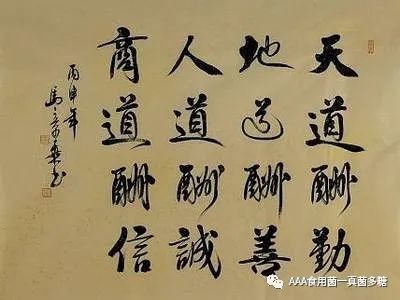 天道酬勤
地道酬善
人道酬誠
商道酬信
丙申年
AAA食用菌一真菌多糖